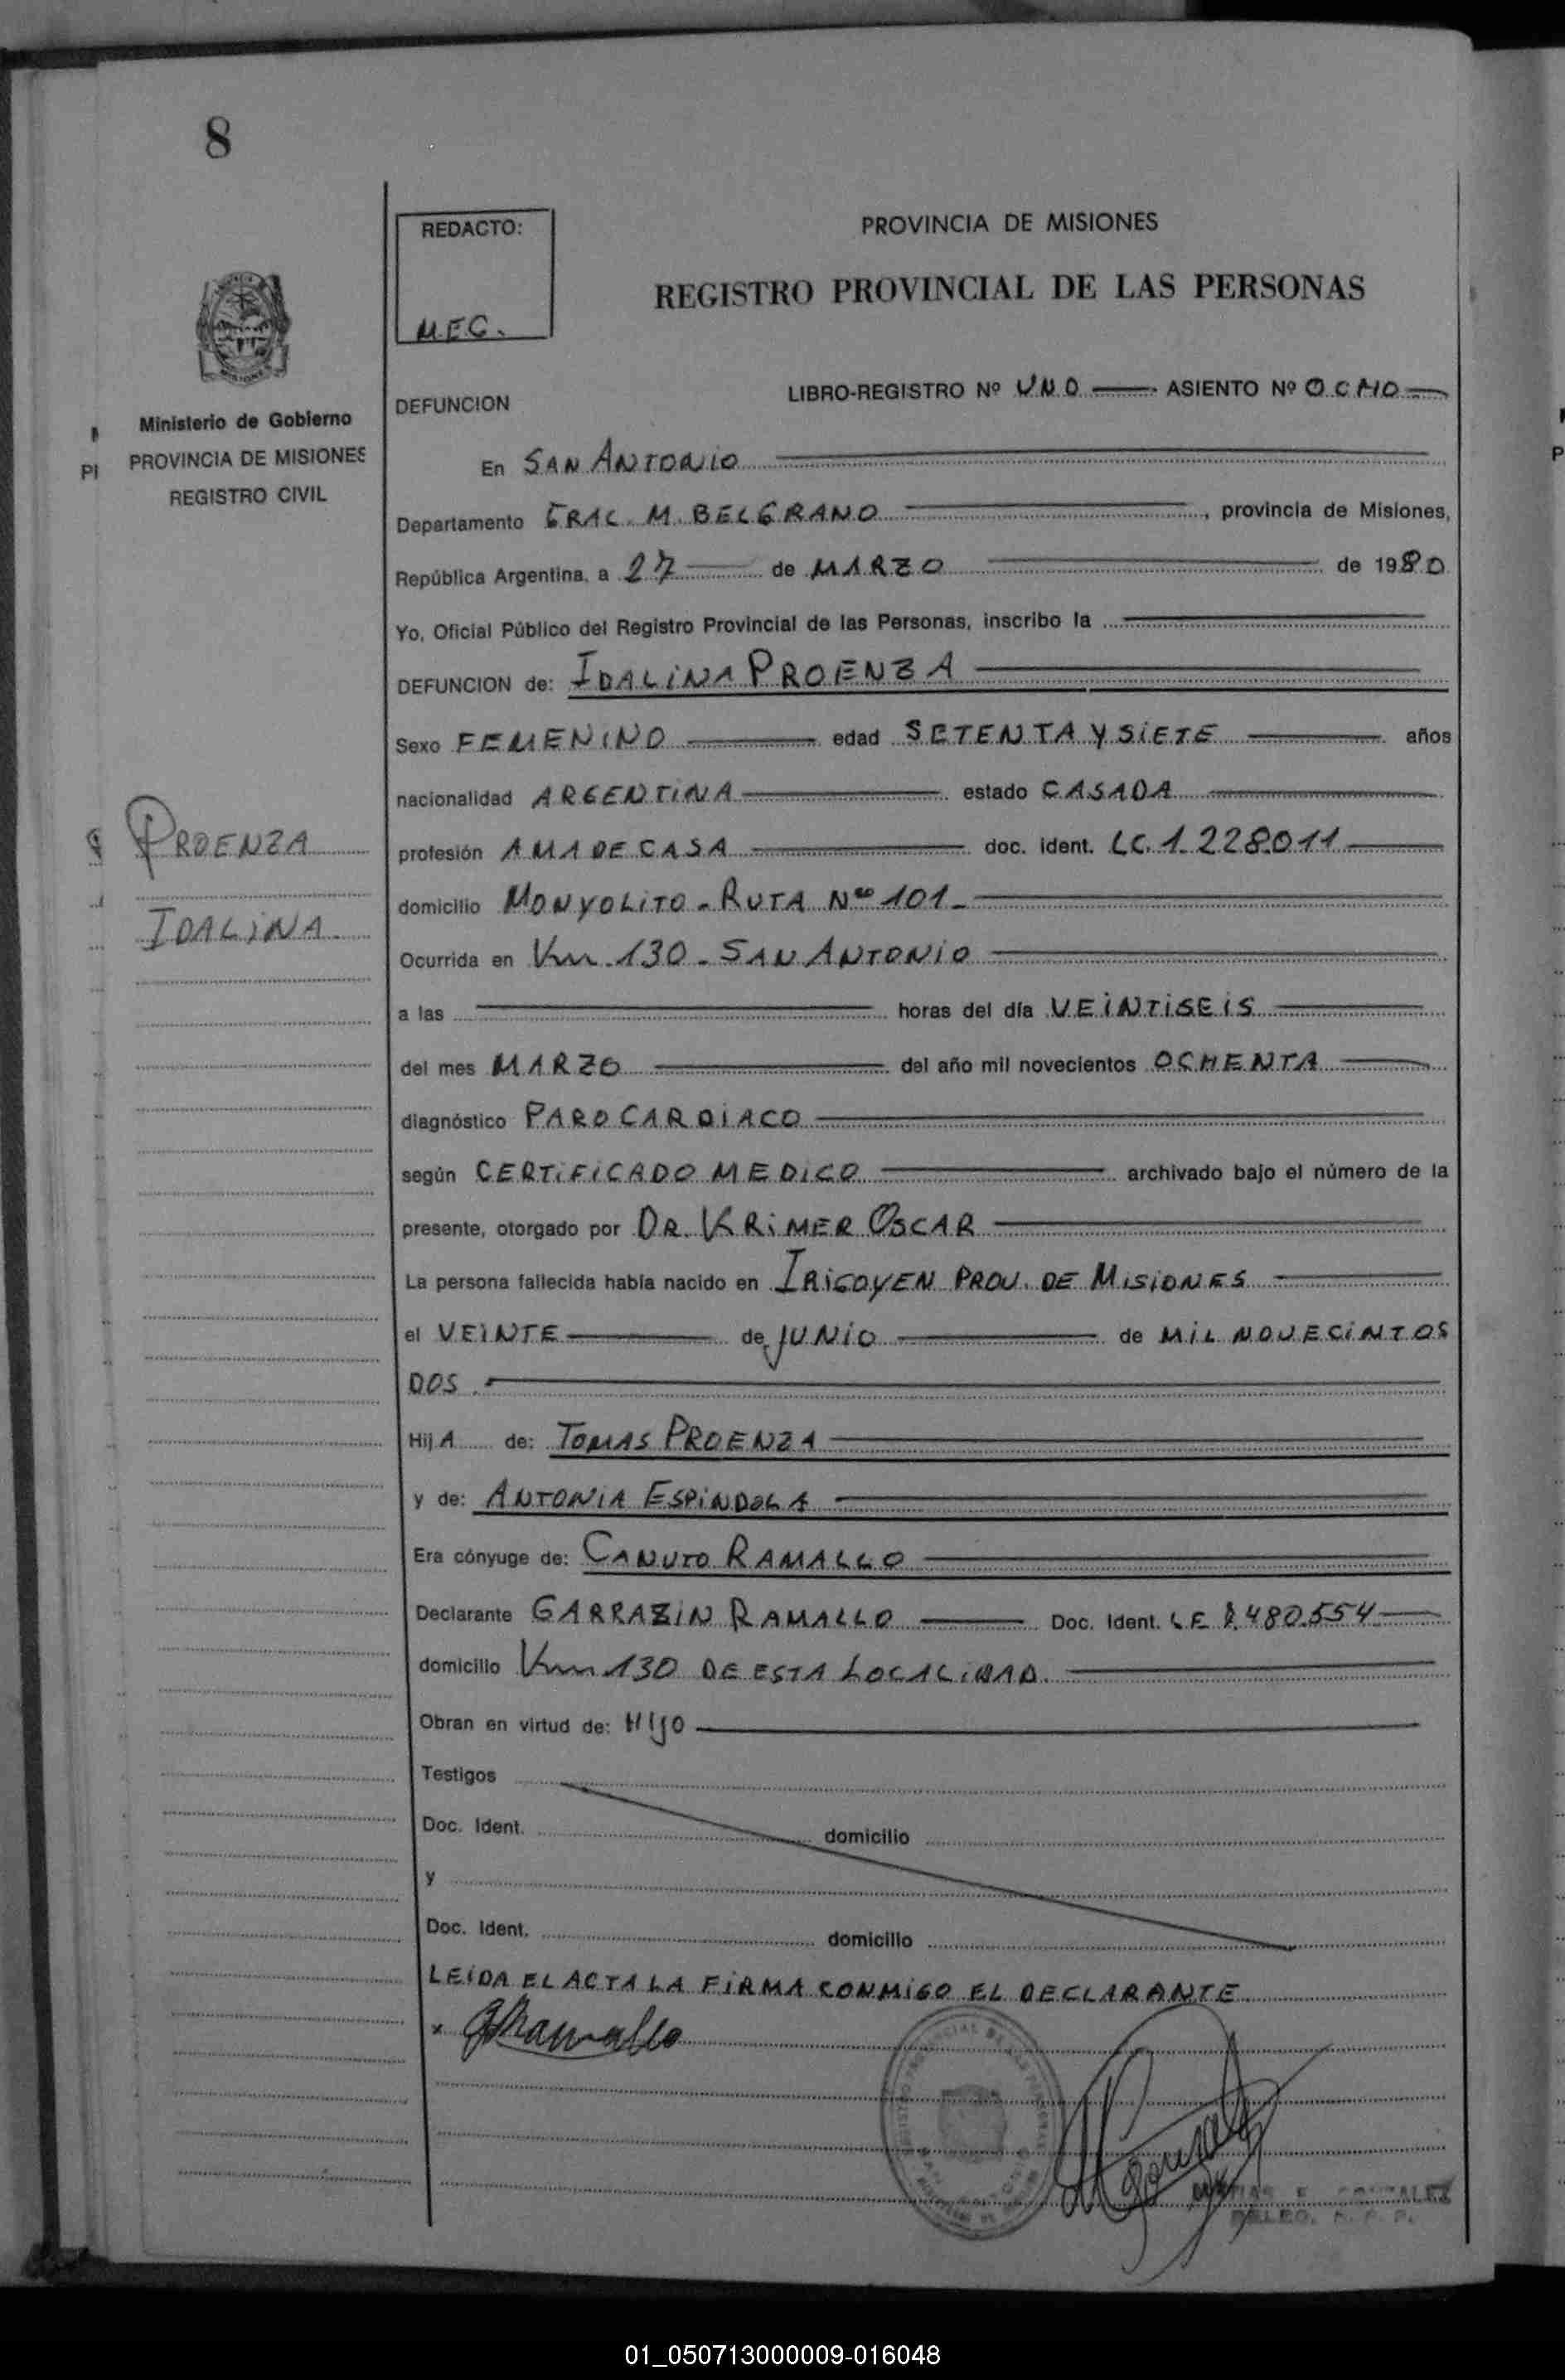 8
REDACTO:
M.E.G.
PROVINCIA DE MISIONES
REGISTRO PROVINCIAL DE LAS PERSONAS
Ministerio de Gobierno
PROVINCIA DE MISIONES
REGISTRO CIVIL
PROENZA
IDALINA
DEFUNCION
LIBRO-REGISTRO Nº UNO ASIENTO Nº OCHO
En SAN ANTONIO
Departamento GRAL. M. BELGRANO, provincia de Misiones,
República Argentina, a 27 de MARZO de 1980
Yo, Oficial Público del Registro Provincial de las Personas, inscribo la
DEFUNCION de: IDALINA PROENZA
Sexo FEMENINO edad SETENTA Y SIETE años
nacionalidad ARGENTINA estado CASADA
profesión AMA DE CASA doc. ident. LC. 1.228.011
domicilio MONYOLITO - RUTA Nº 101 -
Ocurrida en Km 130 - SAN ANTONIO
a las horas del día VEINTISEIS
del mes MARZO del año mil novecientos OCHENTA
diagnóstico PARO CARDIACO
según CERTIFICADO MEDICO archivado bajo el número de la
presente, otorgado por DR. KRIMER OSCAR
La persona fallecida había nacido en IRIGOYEN PROV. DE MISIONES
el VEINTE de JUNIO de MIL NOVECINTOS
DOS
Hij A de: TOMAS PROENZA
y de: ANTONIA ESPINDOLA
Era cónyuge de: CANUTO RAMALLO
Declarante GARRAZIN RAMALLO Doc. Ident. LE 8.480.554
domicilio Km 130 DE ESTA LOCALIDAD.
Obran en virtud de: HIJO
Testigos
Doc. Ident. domicilio
y
Doc. Ident. domicilio
LEIDA EL ACTA LA FIRMA CONMIGO EL DECLARANTE
x GRamallo
E. GONZALEZ
DELEG. R. P. P.
01_050713000009-016048